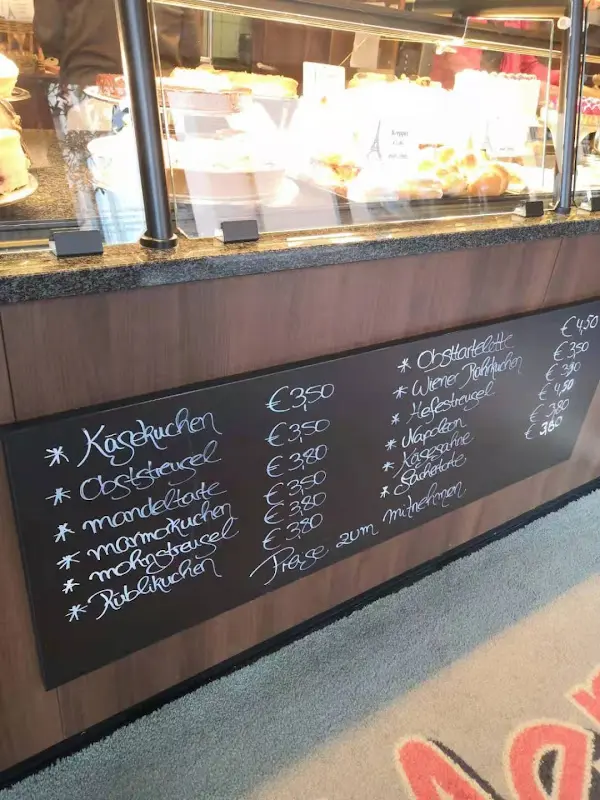 * Käsekuchen €3,50
* Obststreusel €3,50
* mandeltarte €3,80
* marmorkuchen €3,50
* mohnstreusel €3,80
* Rüblikuchen €3,80
* Obsttartelette €4,50
* Wiener Rahmkuchen €3,50
* Hefestreusel
* Napoleon €4,50
* Käsesahne €3,80
* Sachertorte
Preise zum mitnehmen